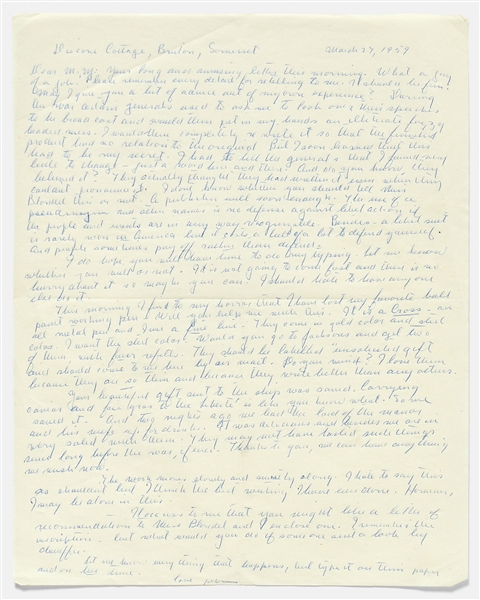 Discove Cottage, Bruton, Somerset March 27, 1959
Dear M.M: Your long and amusing letter this morning. What a
of a job! Please remember every detail for retelling to me. It should be fun!
May I give you a bit of advice out of my own experience? During
the war certain generals used to ask me to look over their speeches
to be broadcast and would then put in my hands an illiterate fuzzy
headed mess. I would then completely re write it so that the finished
product had no relation to the original. But I soon learned that this
had to be very secret. I had to tell the generals that I found very
little to change — just a word here and there. And do you know, they
believed it? They actually thought they had written
I don't know whether you should tell Miss
Blondel this or not. A publisher will soon enough. The use of a
pseudonym and other names is no defense against libel action if
the people and events are in any way recognizable. a libel suit
is rarely won in America but it costs a hell of a lot to defend yourself
and people sometimes pay off rather than defend.
I do hope you will have time to do my typing. Let me know
whether you will or not. It is not going to come fast and there is no
worry about it so maybe you can. I should hate to have anyone
else do it.
This morning I find to my horror that I have lost my favorite ball
point working pen. Will you help me with this. It is a Cross — an
all metal pen and I use a fine line. They come in gold color and steel
color. I want the steel color. Would you go to and get two
of them with four refills. They should be labelled unsolicited gift
and should come to me here by air mail. Do you mind? I love them
because they are so thin and because they write better than any others.
Your beautiful gift sent to the ship was saved. Carrying
caviar and foie gras to the Liberté is like you know what. So we
saved it. And two nights ago we had the lord of the manor
and his wife up for drinks. It was delicious and besides we are in
very solid with them. They may not have tasted such things
since long before the war, if ever. Thanks to you, we can have anything
we wish now.
The work moves slowly and sweetly along. I hate to say this
as shouldn't but I think the best writing I have ever done. However,
I may be alone in this.
It occurs to me that you might like a letter of
recommendation to Miss Blondel and I enclose one. I remember the
inscription. But what would you do if someone sent a book by
chauffer.
Let me know everything that happens, but type it on thin paper
and on both sides.
love from